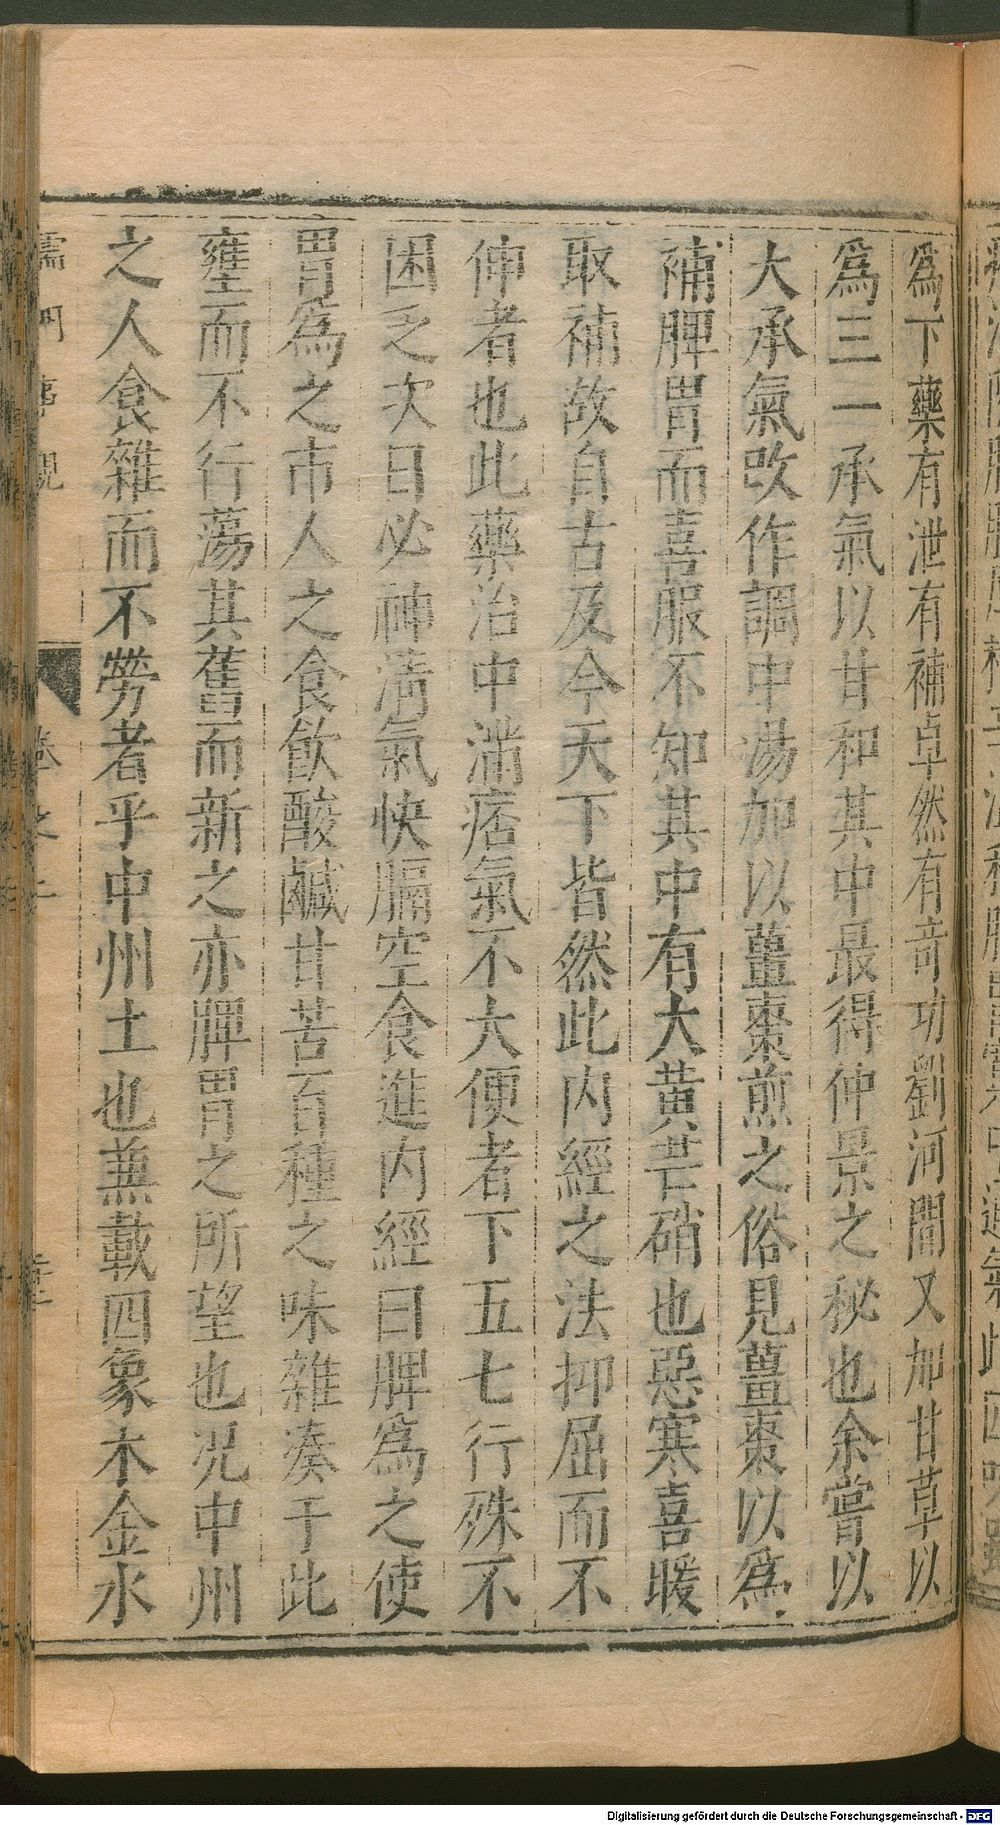 爲下藥有泄有補卓然有竒功劉河間又加甘草以
爲三一承氣以甘和其中最得仲景之秘也余嘗以
大承氣改作調中湯加以薑棗煎之俗見薑棗以爲
補脾胃而喜服不知其中有大黄芒硝也惡寒喜暖
取補故自古及今天下皆然此内經之法抑屈而不
伸者也此藥治中滿痞氣不大便者下五七行殊不
困乏次日必神清氣快膈空食進内經曰脾爲之使
胃爲之市人之食飲酸鹹甘苦百種之味雜凑于此
壅而不行蕩其舊而新之亦脾胃之所望也况中州
之人食雜而不勞者乎中州土也兼載四象木金水
儒門事親
卷之二
Digitalisierung gefördert durch die Deutsche Forschungsgemeinschaft - DFG